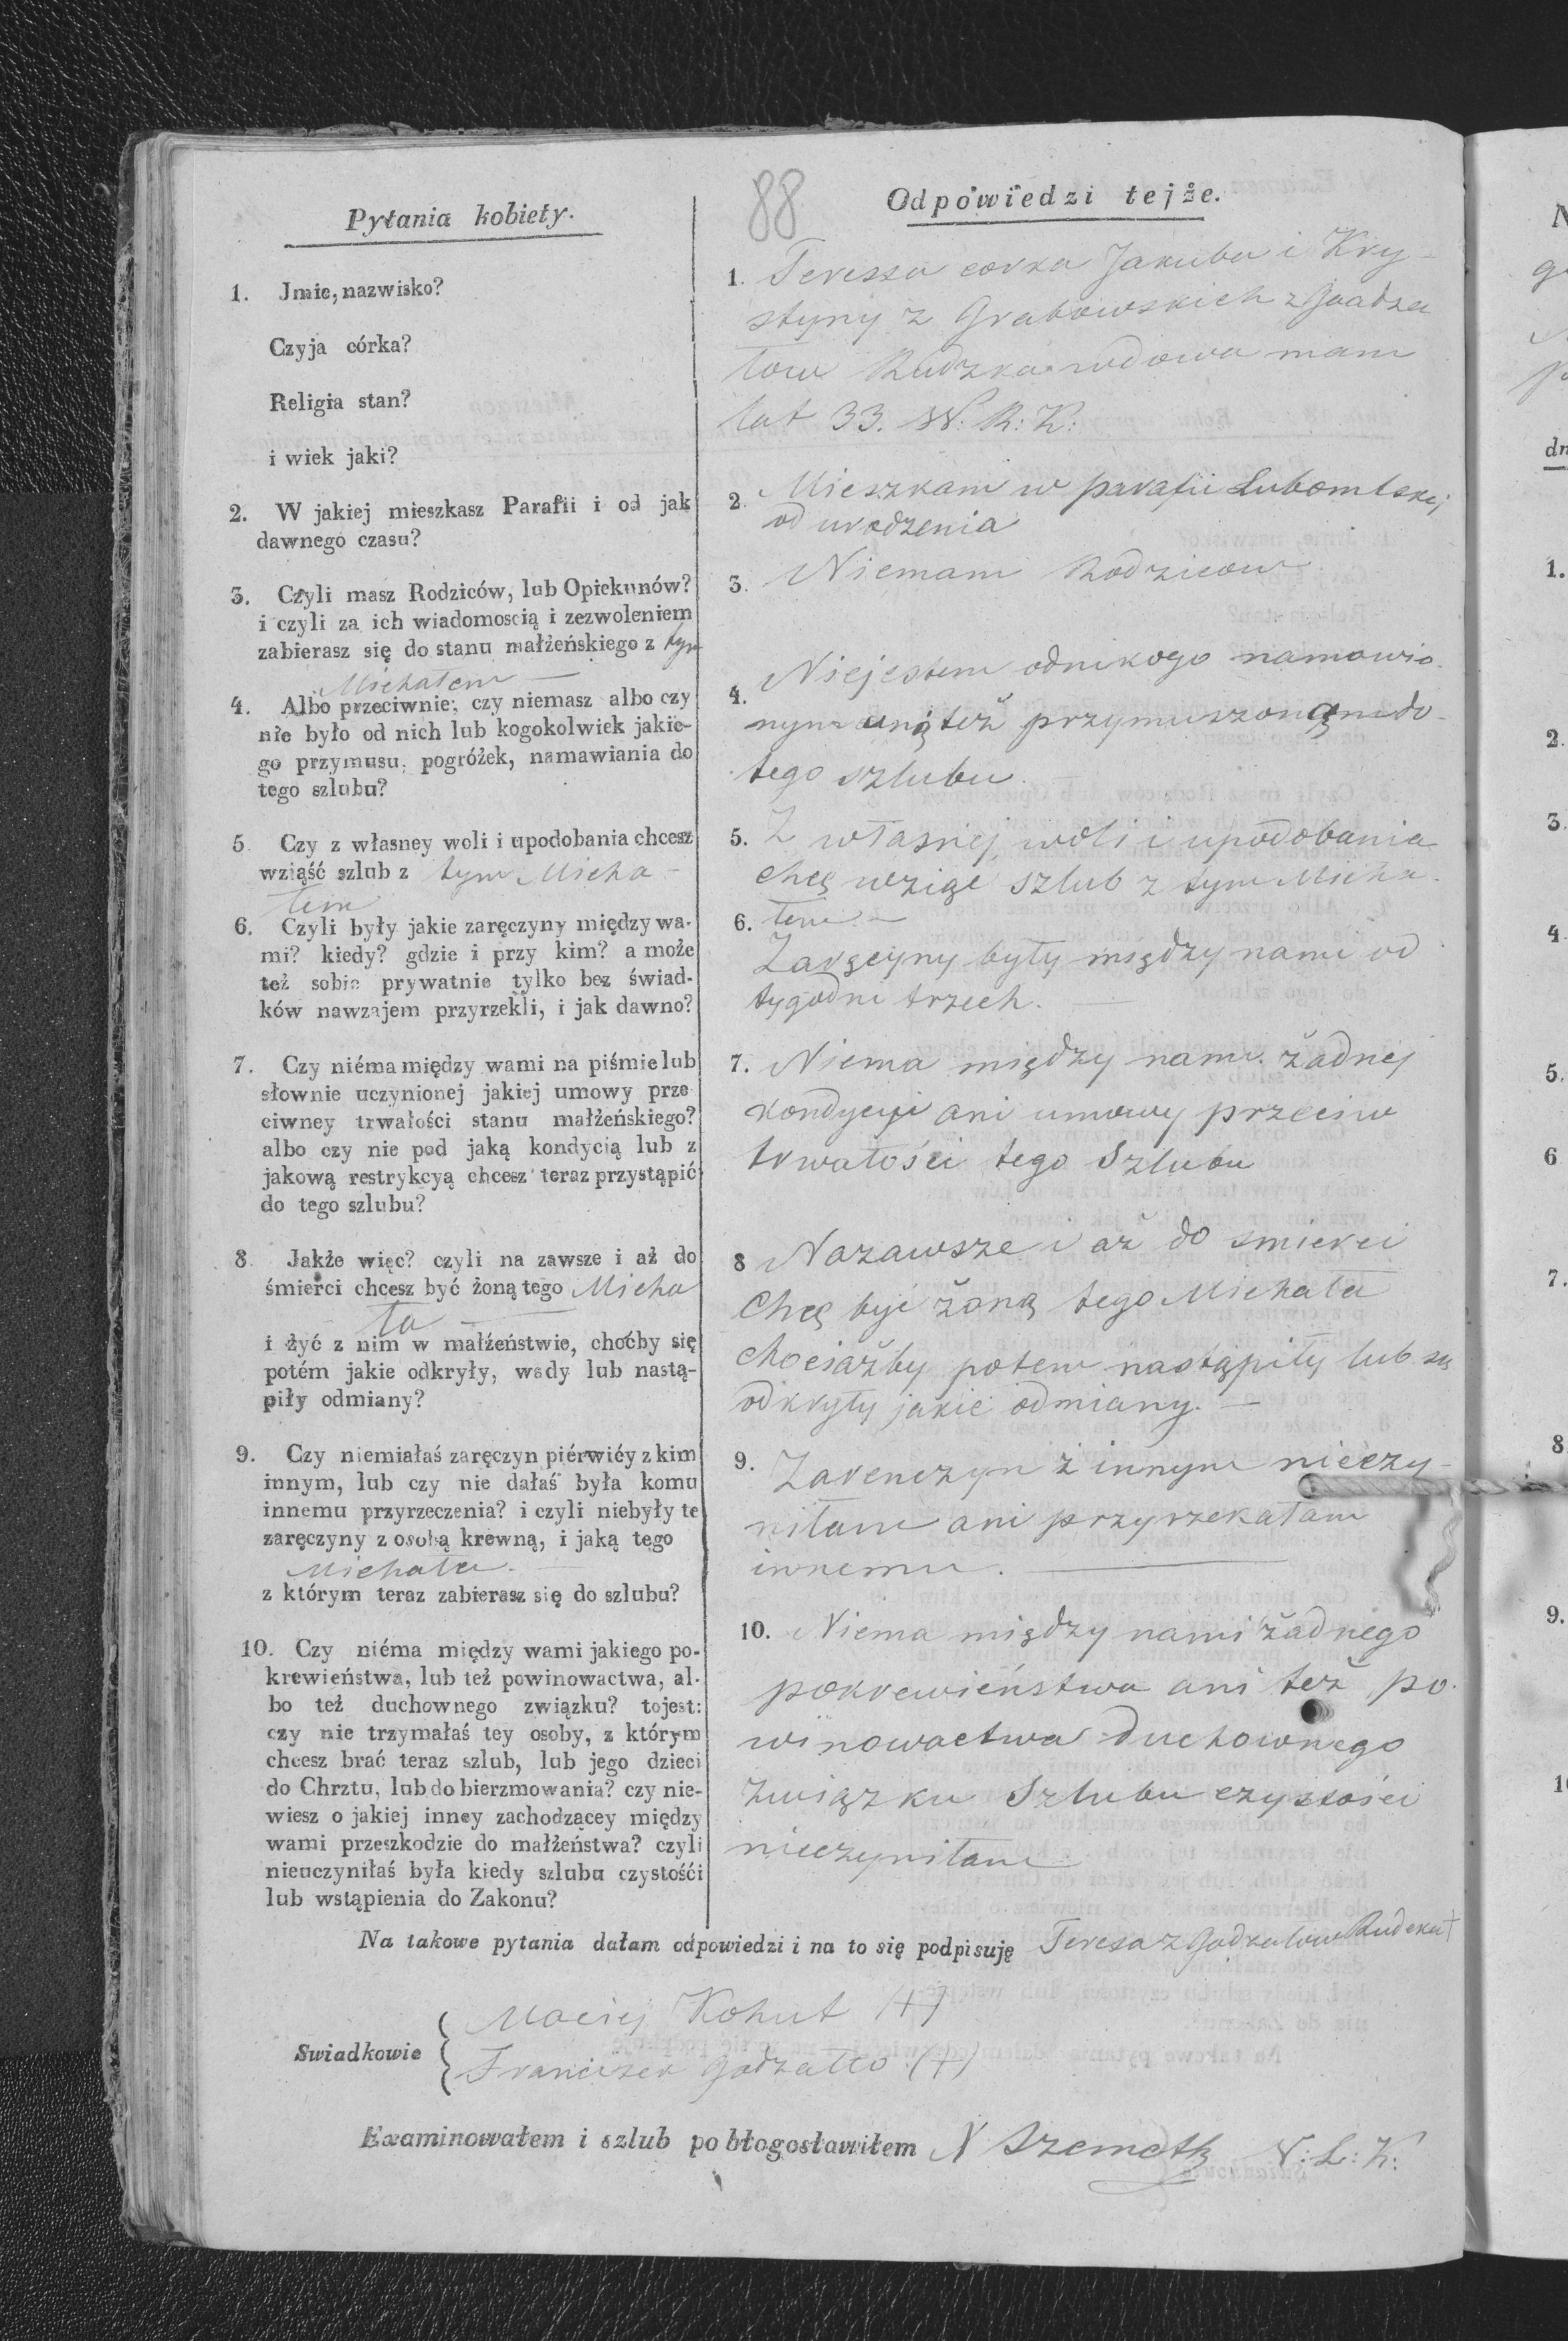 88
Pytania kobiety.
1. Jmie, nazwisko?
Czyja córka?
Religia stan?
i wiek jaki?
2. W jakiej mieszkasz Parafii i od jak
dawnego czasu?
3. Czyli masz Rodziców, lub Opiekunów?
i czyli za ich wiadomoscią i zezwoleniem
zabierasz się do stanu małżeńskiego z tym
Michałem
4. Albo przeciwnie; czy niemasz albo czy
nie było od nich lub kogokolwiek jakie-
go przymusu, pogróżek, namawiania do
tego szlubu?
5. Czy z własney woli i upodobania chcesz
wziąść szlub z tym Micha-
łem
6. Czyli były jakie zaręczyny między wa-
mi? kiedy? gdzie i przy kim? a może
też sobie prywatnie tylko bez świad-
ków nawzajem przyrzekli, i jak dawno?
7. Czy niéma między wami na piśmie lub
słownie uczynionej jakiej umowy prze
ciwney trwałości stanu małżeńskiego?
albo czy nie pod jaką kondycią lub z
jakową restrykcyą chcesz teraz przystąpić
do tego szlubu?
8. Jakże więc? czyli na zawsze i aż do
śmierci chcesz być żoną tego Micha
ła
i żyć z nim w małżeństwie, choćby się
potém jakie odkryły, wady lub nastą-
piły odmiany?
9. Czy niemiałaś zaręczyn piérwiéy z kim
innym, lub czy nie dałaś była komu
innemu przyrzeczenia? i czyli niebyły te
zaręczyny z osobą krewną, i jaką tego
Michała
z którym teraz zabierasz się do szlubu?
10. Czy niéma między wami jakiego po-
krewieństwa, lub też powinowactwa, al-
bo też duchownego związku? tojest:
czy nie trzymałaś tey osoby, z którym
chcesz brać teraz szlub, lub jego dzieci
do Chrztu, lub do bierzmowania? czy nie-
wiesz o jakiej inney zachodzącey między
wami przeszkodzie do małżeństwa? czyli
nieuczyniłaś była kiedy szlubu czystośći
lub wstąpienia do Zakonu?
Odpowiedzi tejże.
1. Teressa corka Jakuba i Kry-
styny z Grabowskich
Rudzka wdowa mam
lat 33. W: R: K:
2. Mieszkam w parafii Lubomlskej
od urodzenia
3. Niemam Rodzicow
4. Niejestem odnikogo namowio
nym anį też przymuszoną do
tego szlubu.
5. Z własnej woli i upodobania
chcę wziąć szlub z tym Micha-
6. łem
Zaręcyny były między nami od
tygodni trzech.
7. Niema między nami żadnej
kondycyi ani umowy przeciw
trwałości tego Szlubu
8 Nazawsze i aż do smierci
Chcę być żoną tego Michała
chociażby potem nastąpiły lub są
odkryty jakie odmiany.
9. Zarenczyn z innym nieczy-
niłam ani przyrzekałam
innemu.
10. Niema między nami żadnego
pokrewieństwa ani też po-
winowactwa duchownego
związku Szlubu czystości
nieczyniłam
Na takowe pytania dałam odpowiedzi i na to się podpisuję Teresa z
Maciej Kohut (+)
Swiadkowie
Franciszek Godzatło (+)
Examinowałem i szlub pobłogosławiłem N Szemeth